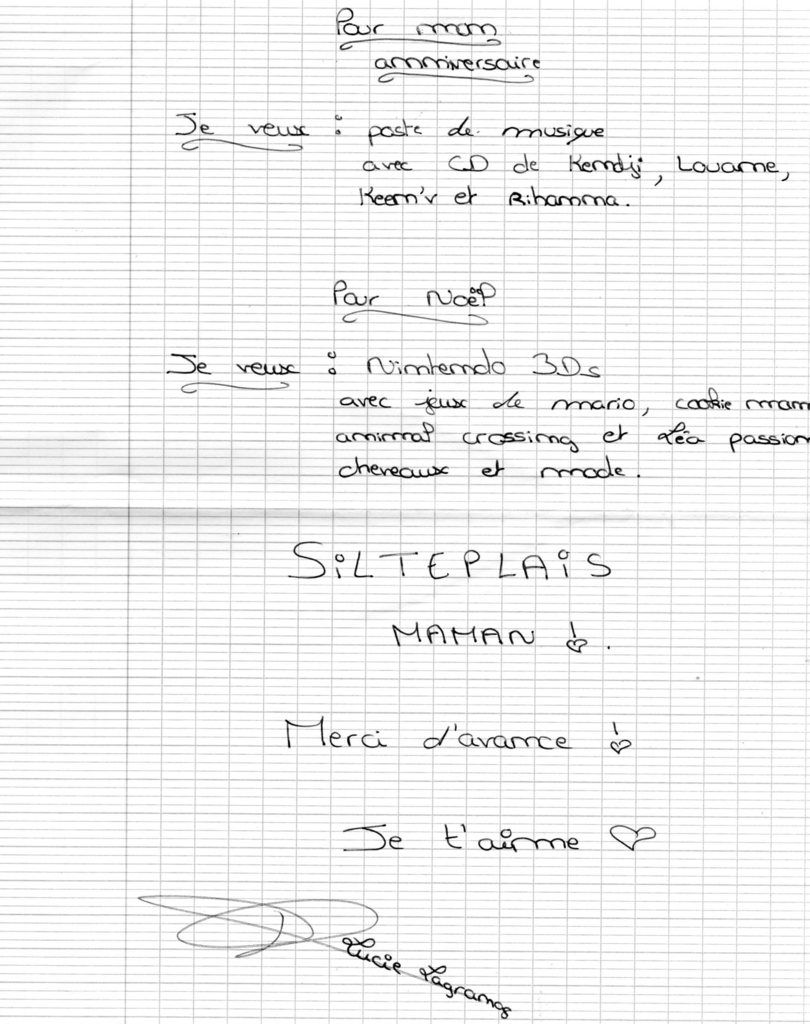 Pour mon
anniversaire
Je veux : poste de musique
avec CD de Kendji, Louane,
Keen'v et Rihanna.
Pour Noël
Je veux : Nintendo 3Ds
avec jeux de mario, cookie mam
animal crossing et Léa passion
cheveaux et mode.
SiLTEPLAiS
MAMAN !.
Merci d'avance !
Je t'aime ♡
Lucie Lagrange